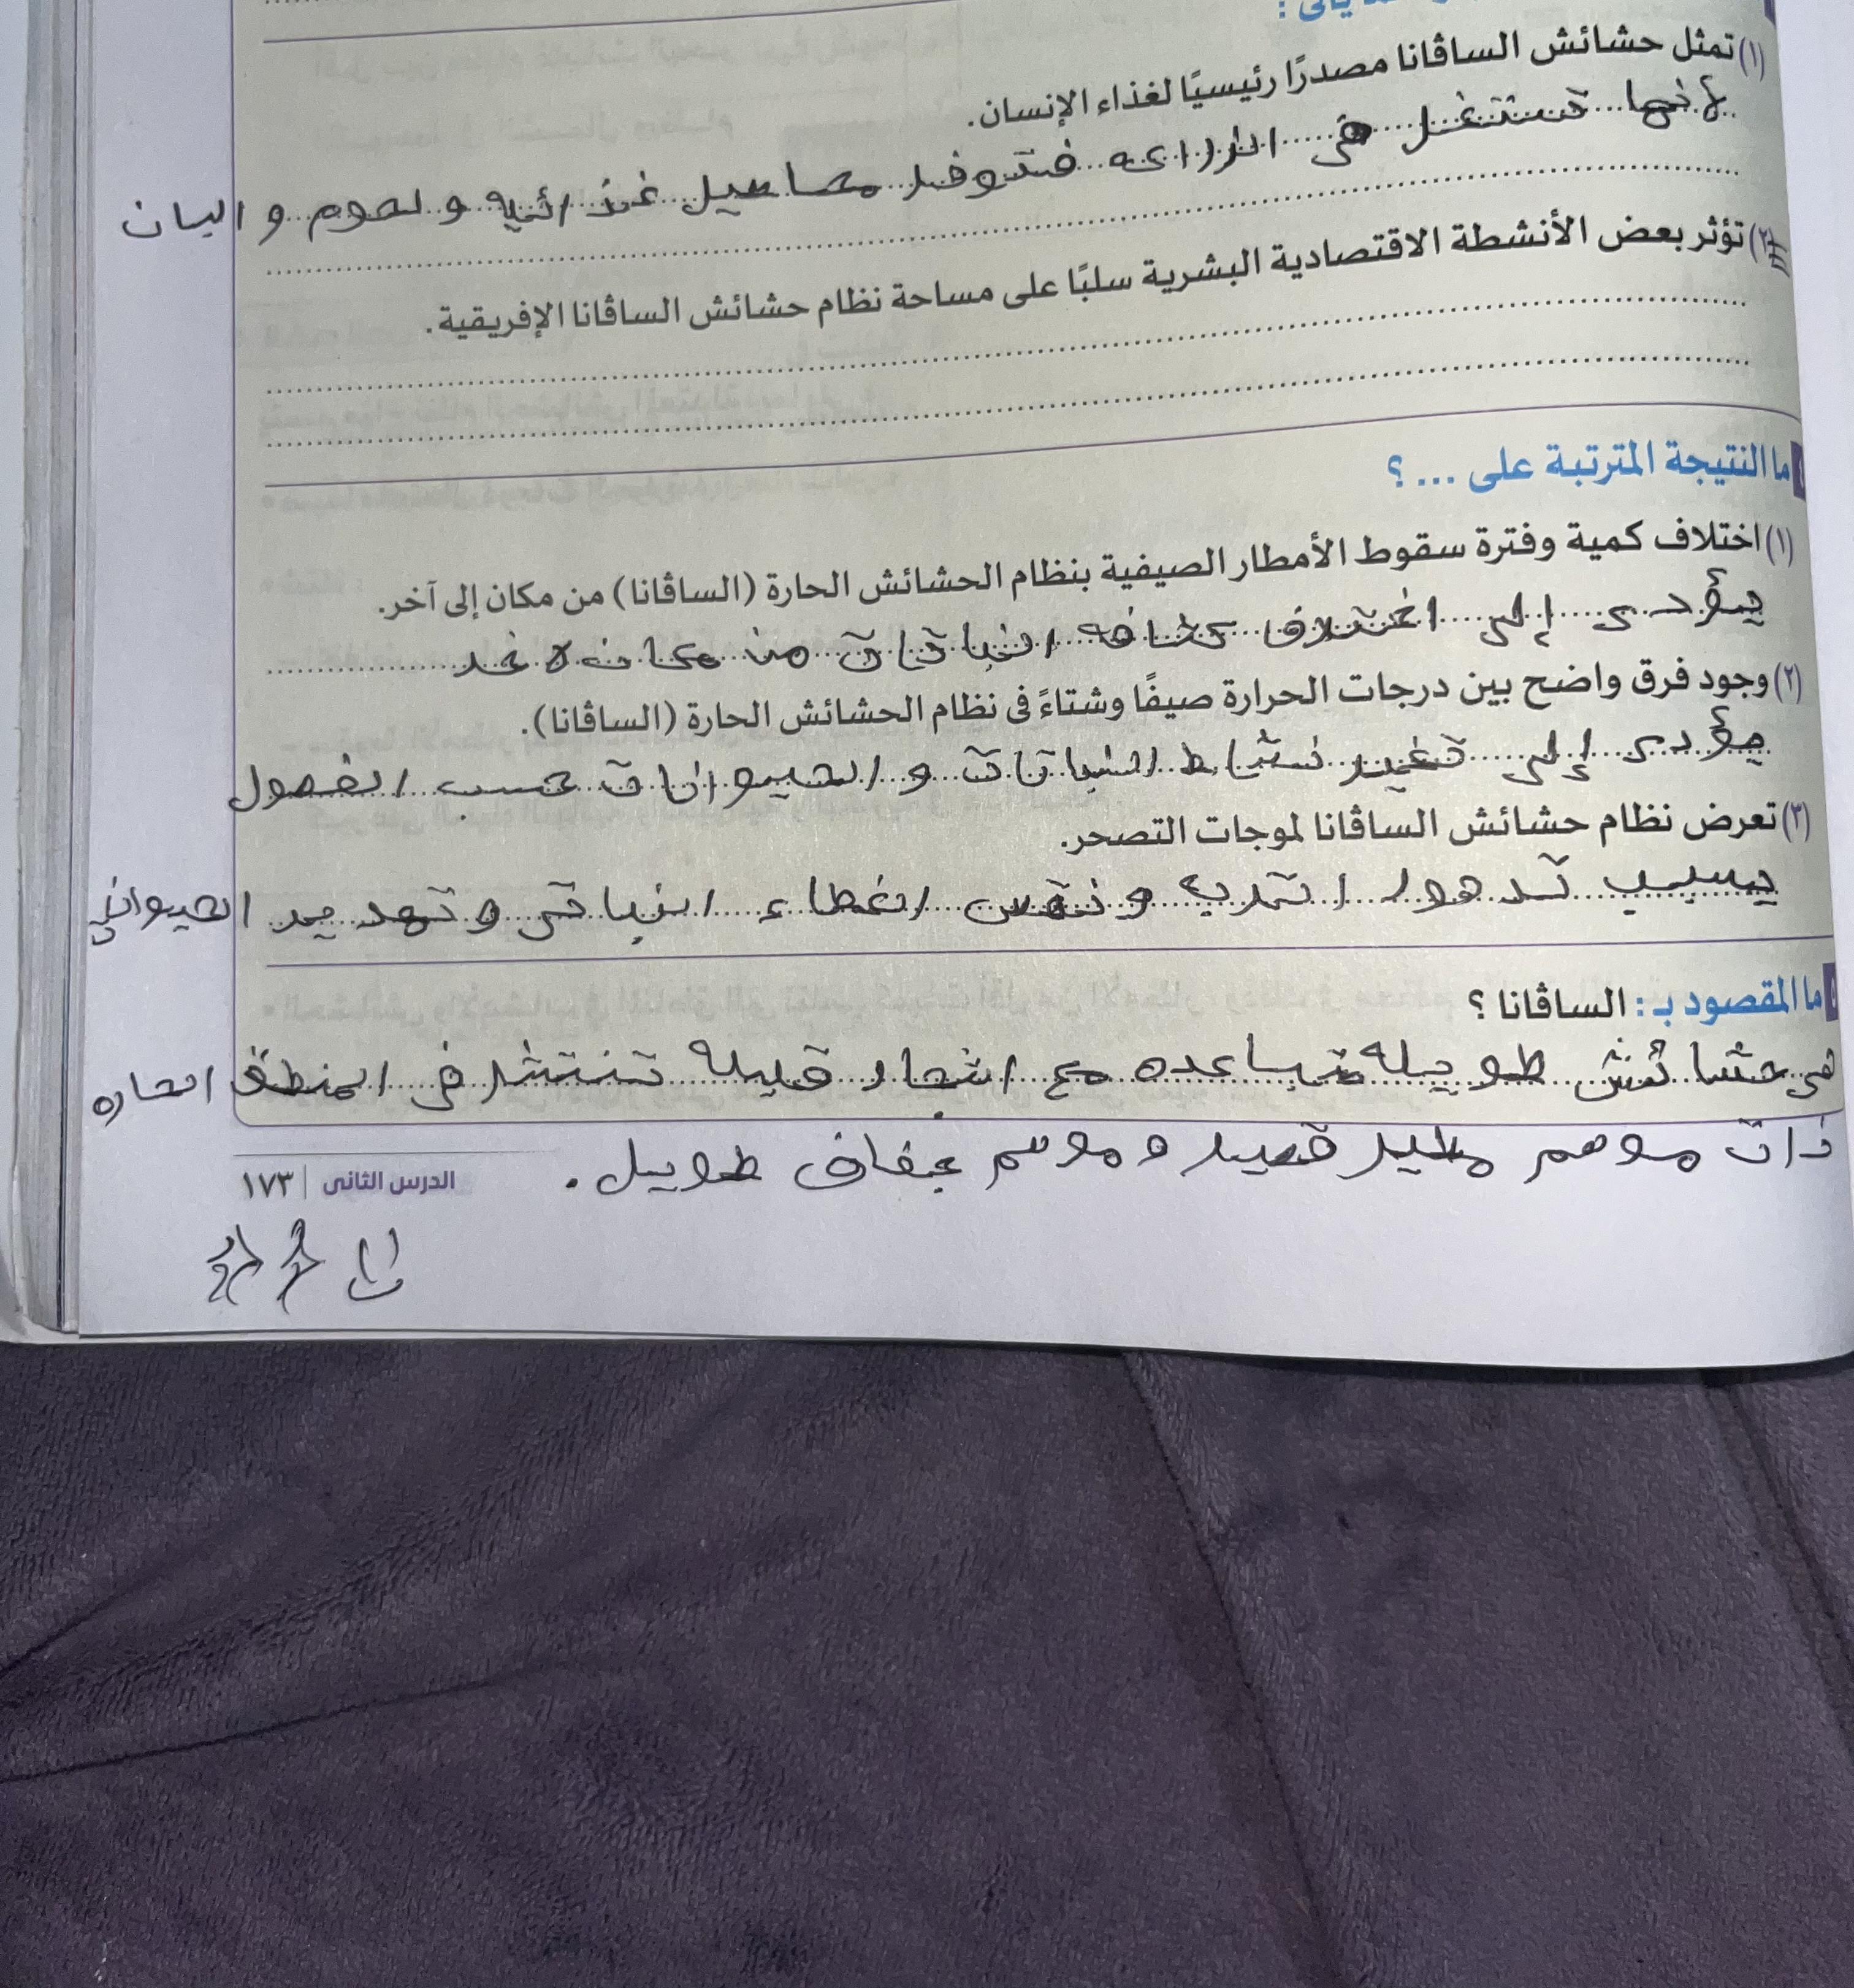 يأتى :
(١) تمثل حشائش الساڤانا مصدرًا رئيسيًا لغذاء الإنسان.
لأنها تستغل فى الزراعه فتوفر محاصيل غذائيه و لحوم و البان
(٢) تؤثر بعض الأنشطة الاقتصادية البشرية سلبًا على مساحة نظام حشائش الساڤانا الإفريقية.
ما النتيجة المترتبة على ... ؟
(١) اختلاف كمية وفترة سقوط الأمطار الصيفية بنظام الحشائش الحارة (الساڤانا) من مكان إلى آخر.
يؤدى إلى اختلاف كثافه النباتات من مكان لاخر
(٢) وجود فرق واضح بين درجات الحرارة صيفًا وشتاءً فى نظام الحشائش الحارة (الساڤانا).
يؤدى إلى تغير نشاط النباتات و الحيوانات حسب الفصول
(٣) تعرض نظام حشائش الساڤانا لموجات التصحر.
يسبب تدهور التربه ونقص الغطاء النباتى و تهديد الحيوانى
ما المقصود بـ : الساڤانا ؟
هى حشائش طويله متباعده مع اشجار قليله تنتشر فى المنطق الحاره
ذات موسم مطير قصير و موسم جفاف طويل .
الدرس الثانى | ١٧٣